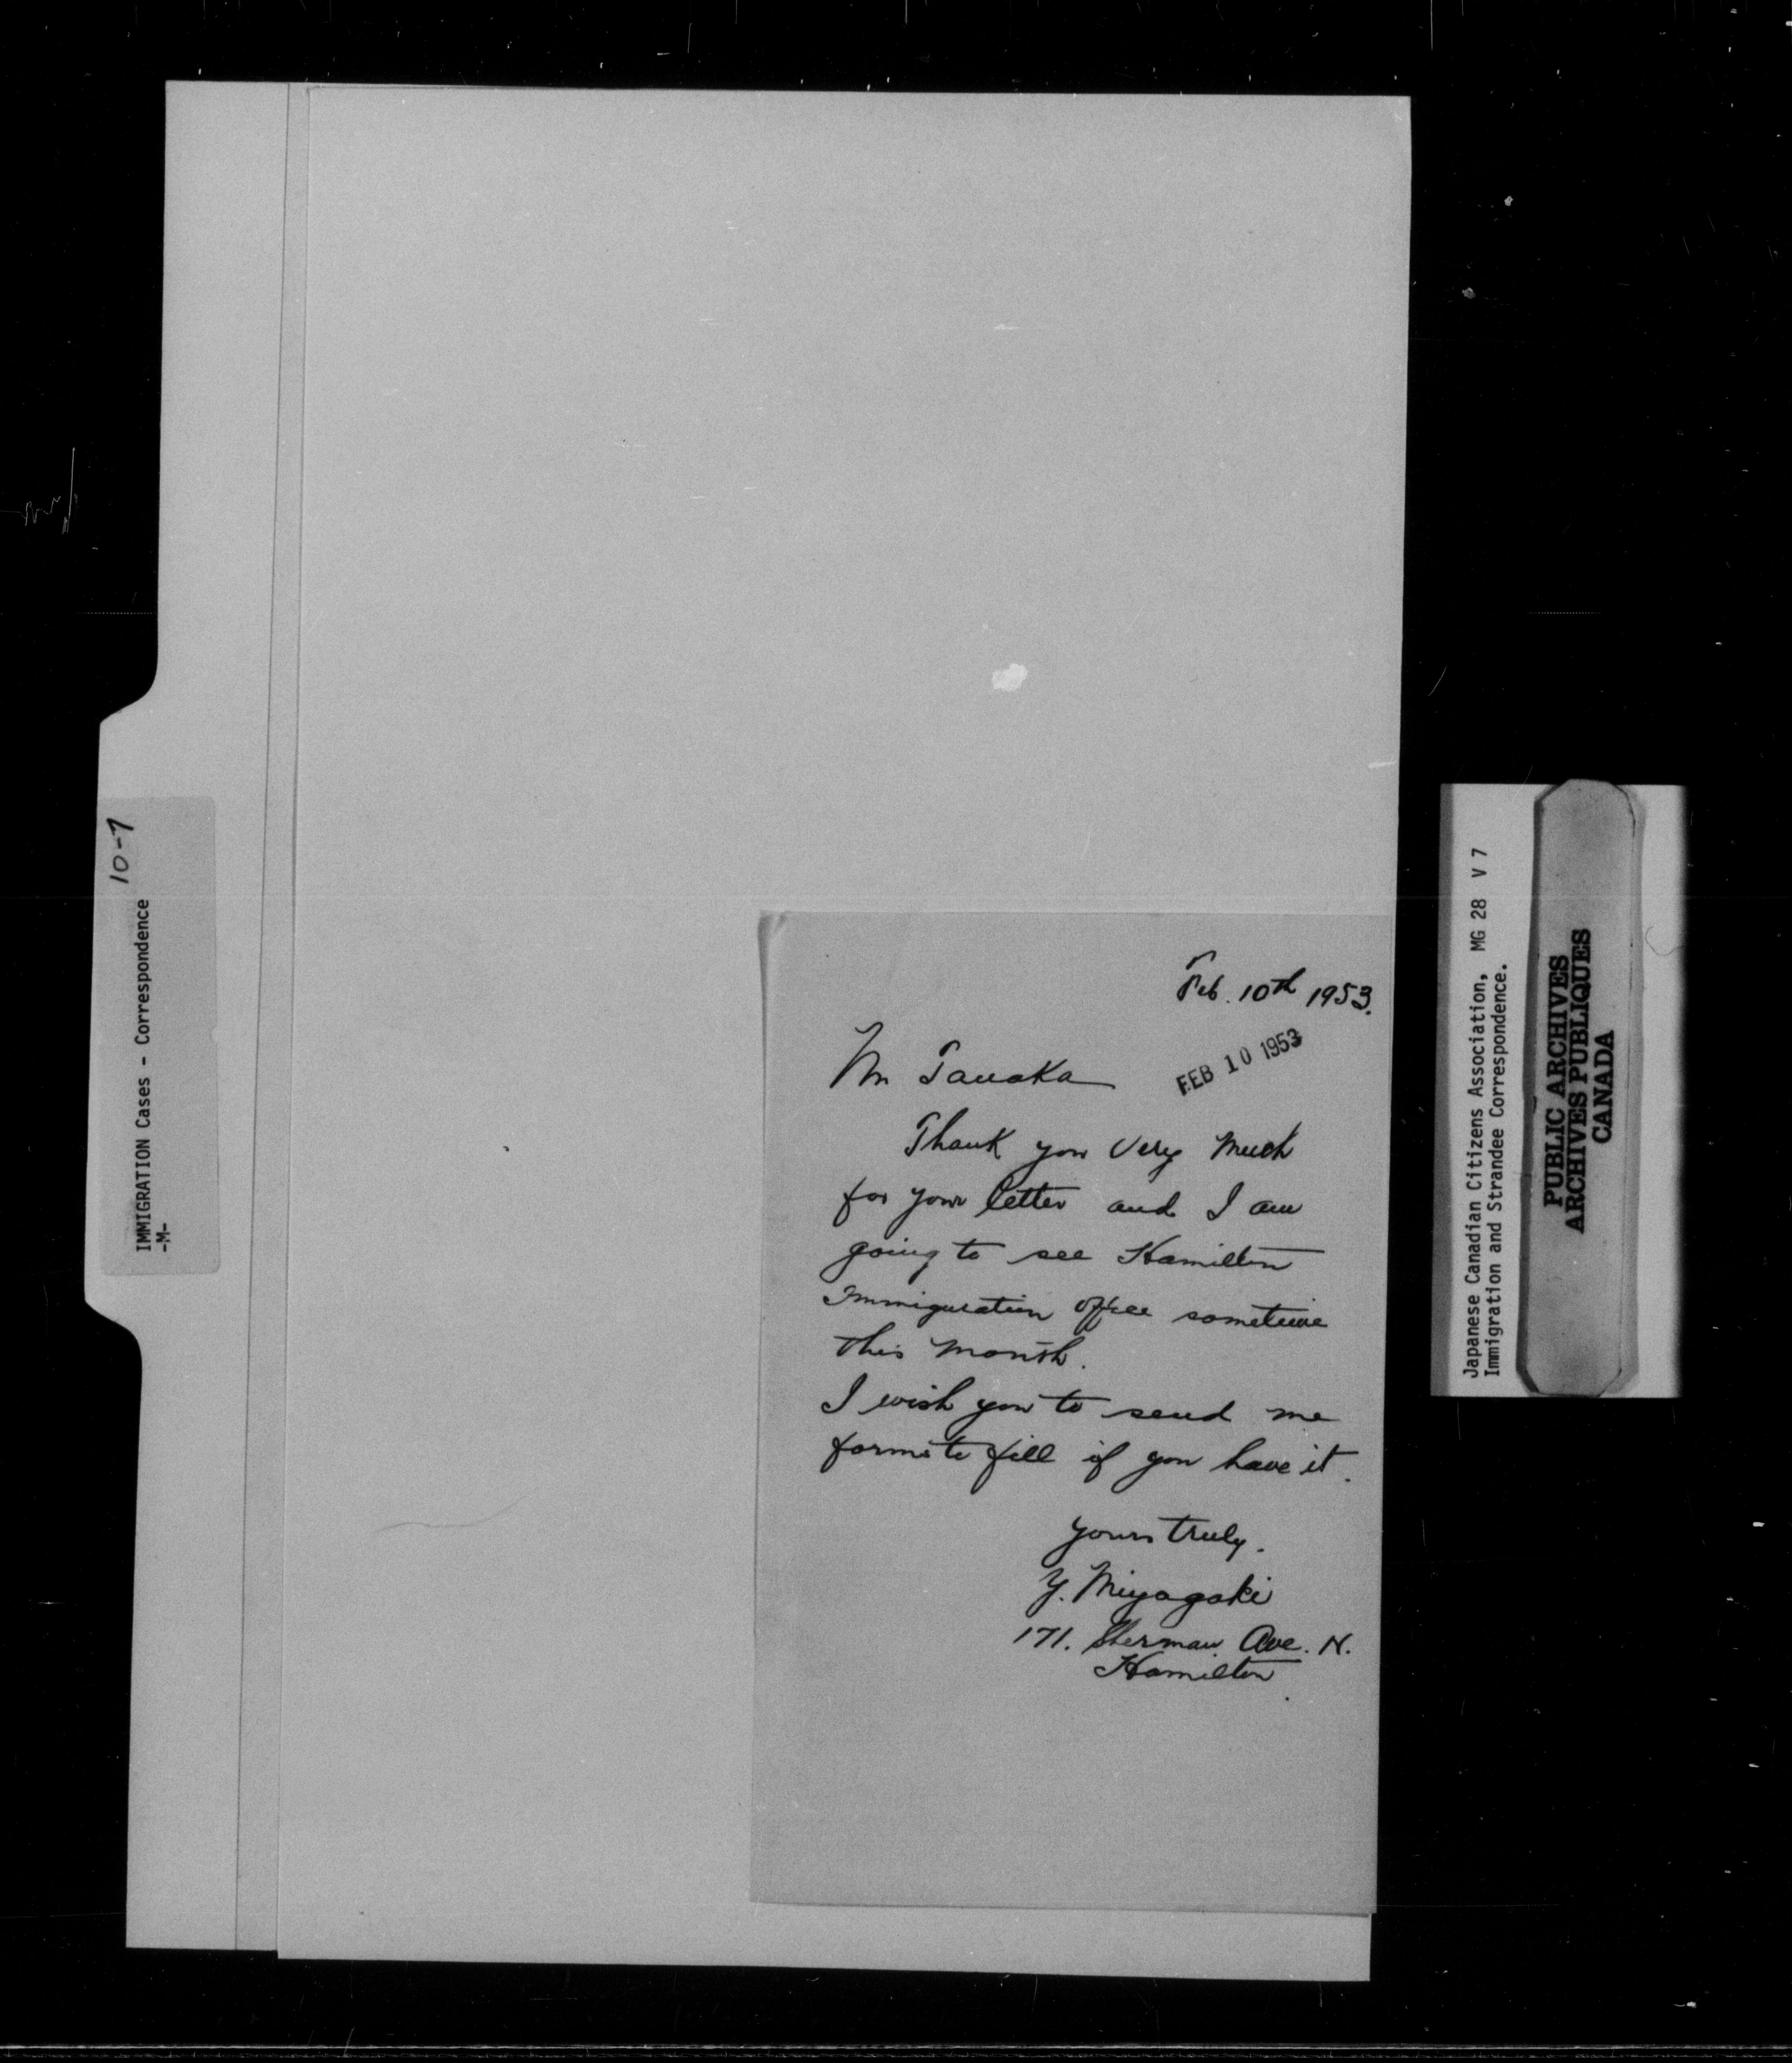 IMMIGRATION Cases - Correspondence 10-7
-M-
Feb. 10th 1953.
FEB 10 1953
Mr Tanaka
Thank you very much
for your letter and I am
going to see Hamilton
Immiguration office sometime
this month.
I wish you to send me
forms to fill if you have it.
yours truly.
Y. Miyagaki
171. Sherman Ave. N.
Hamilton.
Japanese Canadian Citizens Association, MG 28 V 7
Immigration and Strandee Correspondence.
PUBLIC ARCHIVES
ARCHIVES PUBLIQUES
CANADA